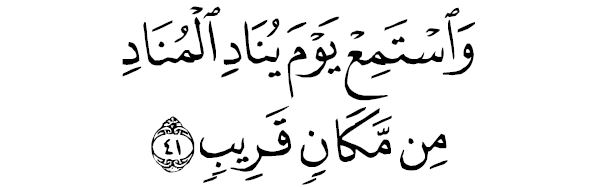 وَٱسْتَمِعْ يَوْمَ يُنَادِ ٱلْمُنَادِ
مِن مَّكَانٍ قَرِيبٍ ٤١